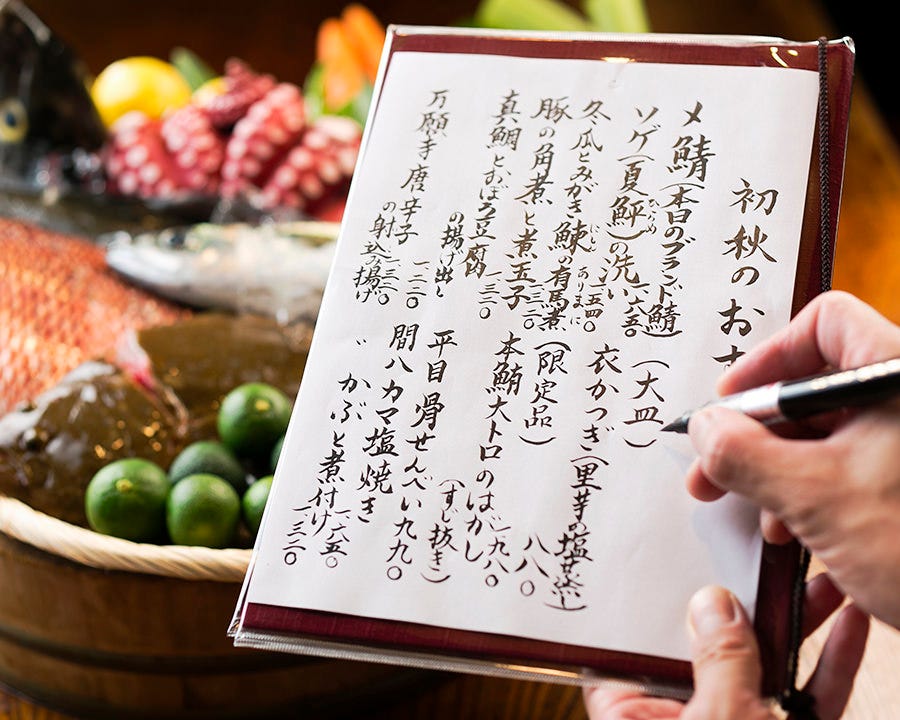 初秋のお
〆鯖(本日のブランド鯖)
ソゲ(夏鮃)の洗い 一六五〇
ひらめ
冬瓜とみがき鰊の有馬煮 一五四〇
にしん ありまに
豚の角煮と煮玉子 一三二〇
真鯛とおぼろ豆腐
の揚げ出し 一三二〇
万願寺唐辛子
の射込み揚げ
(大皿)
衣かつぎ(里芋の塩蒸し)
八八〇
(限定品)
本鮪大トロのはがし
(すじ抜き) 一九八〇
平目骨せんべい 九九〇
間八カマ塩焼き 一六五〇
〃 かぶと煮付け 一三二〇